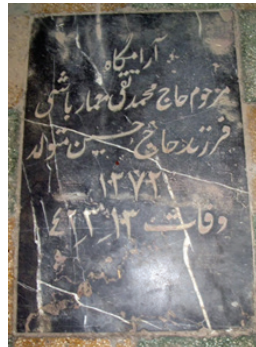 آرامگاه
مرحوم حاج محمد تقی معمار باشی
فرزند حاج حسین متولد
۱۲۷۲
وفات ۱۳ر۳ر۴۲